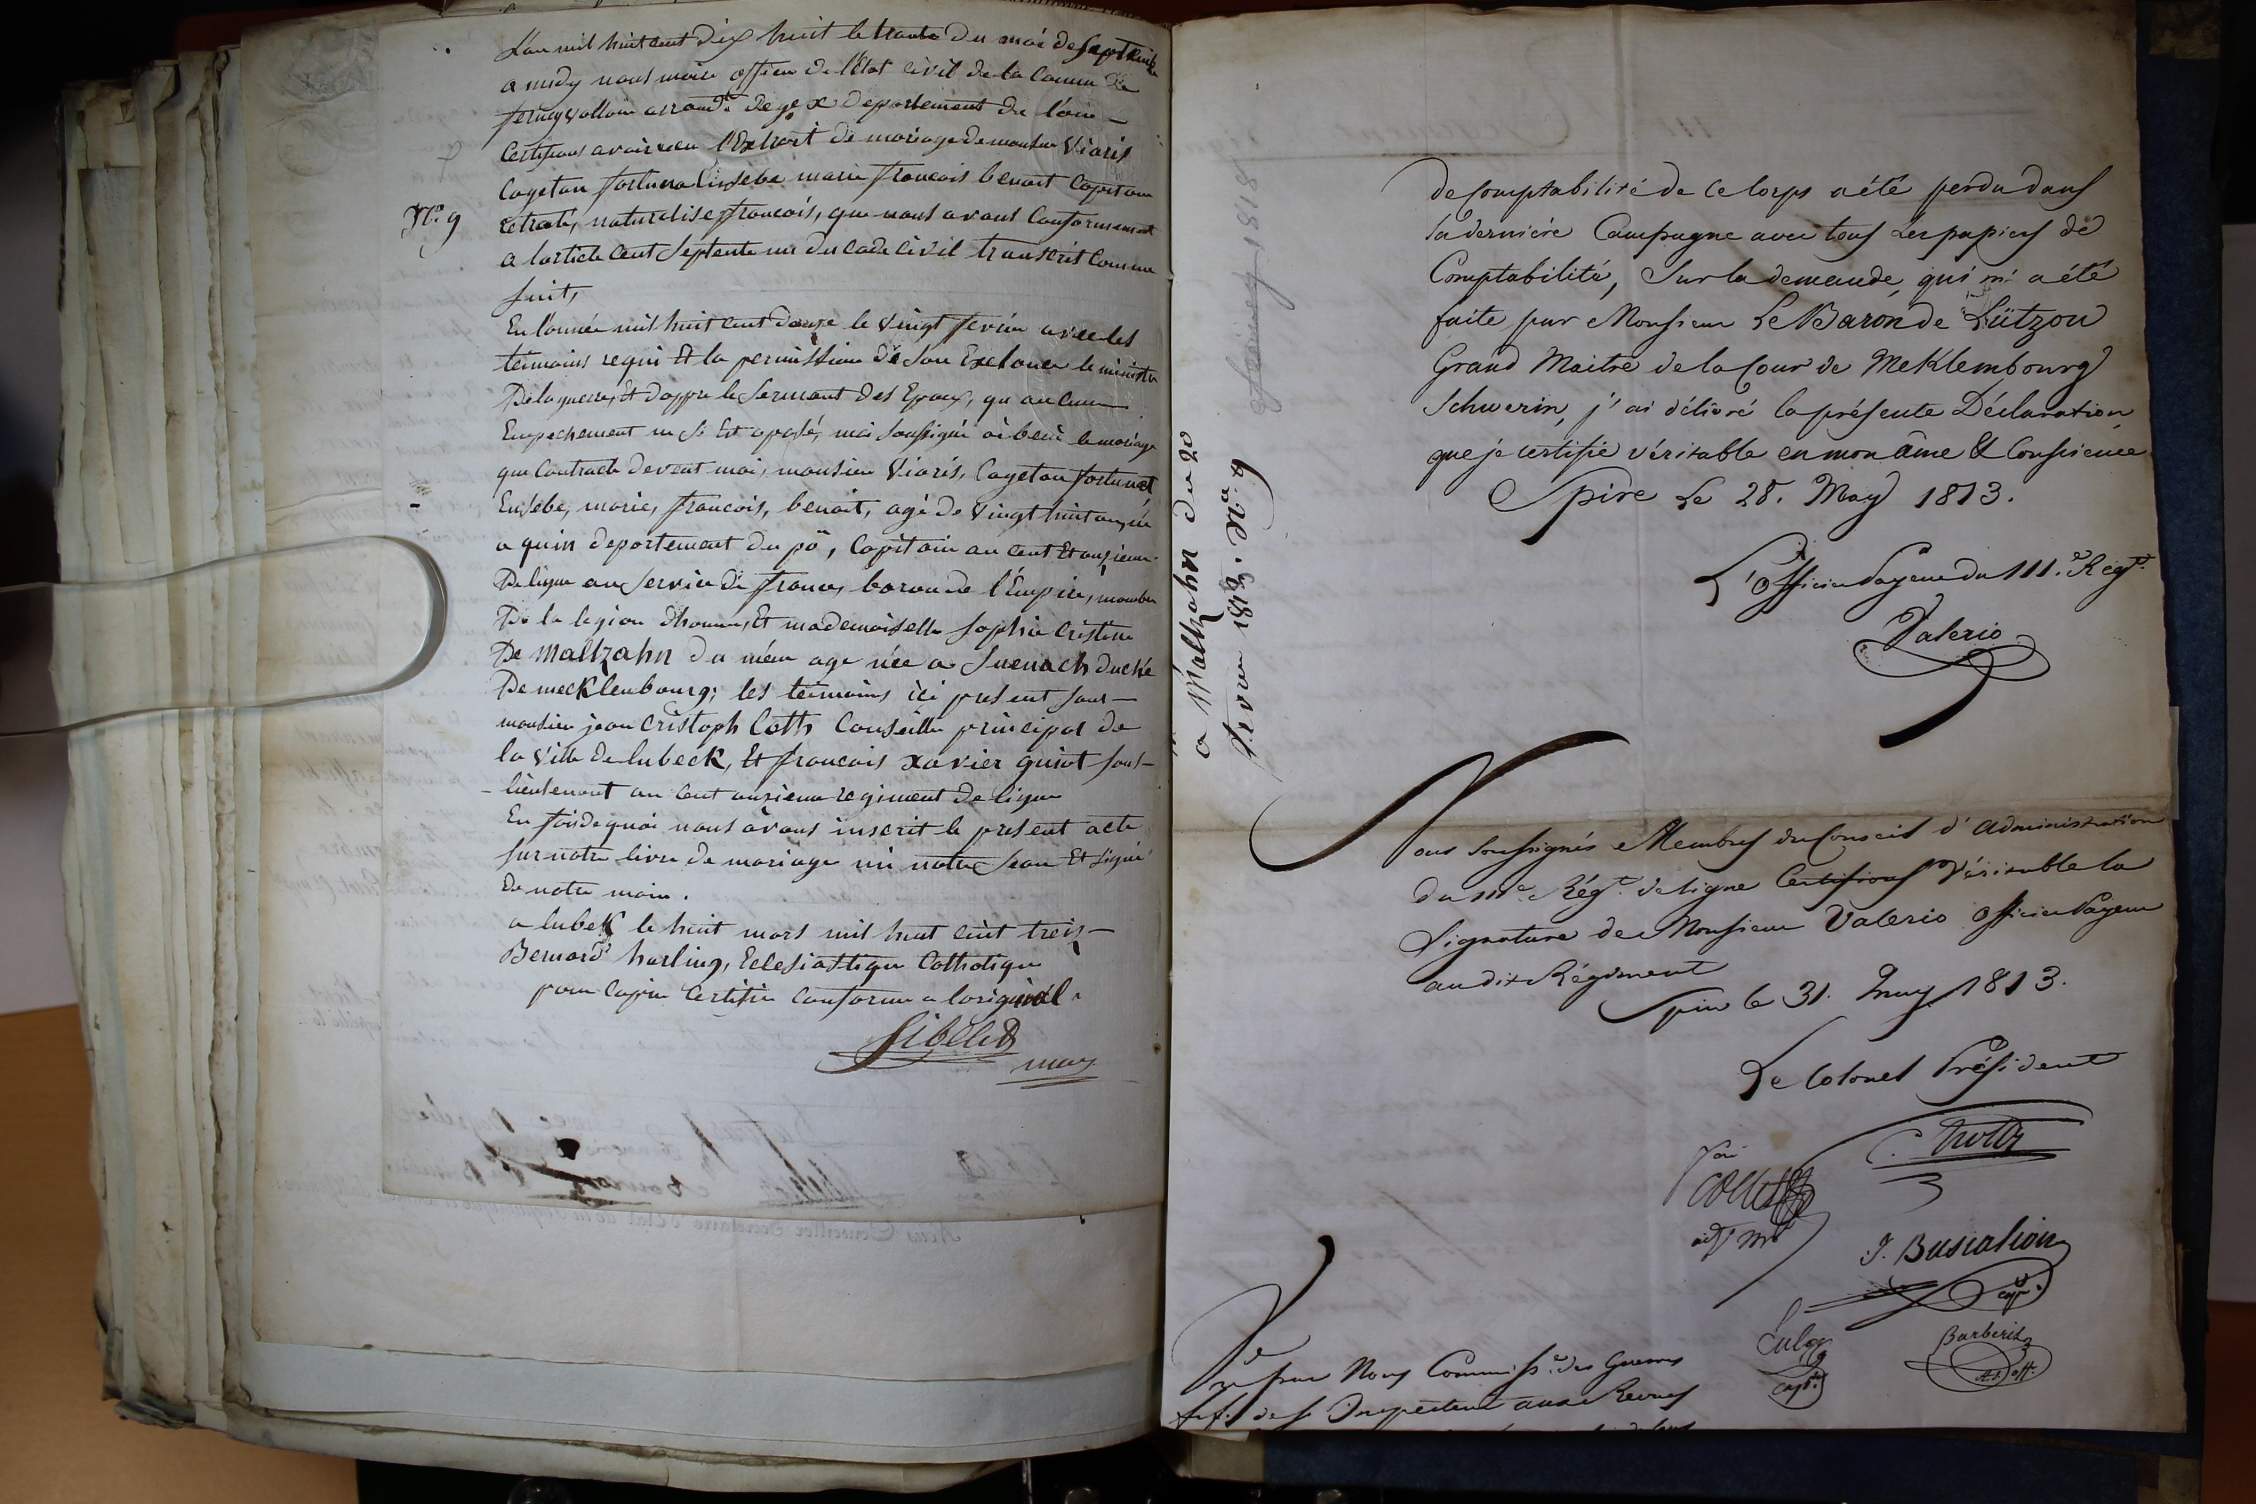 L'an mil huit cent dix huit le trente du moi de septembre
a midy nous maire officier de l'Etat civil de la Comm. de
ferney voltaire arrond.t de gex departement de l'ain
Certifions avoir vu l'Extrait de mariage de monsieur Viaris
Cayetan fortuna Eusebe marie francois benoit Capitaine
N.° 9
retraité, naturalise francois, que nous avons Conformement
a l'article Cent Septente un du Code civil transcrit Comme
suit,
En l'année mil huit cent douze le vingt fevrier avec les
temoins requi et la permission de son Exelence le ministre
De la guerre, et d'appre le serment des Epoux, qu aucun
Empechement ne si est oposé, moi soussigné ai beni le mariage
que Contracte devent moi, monsieur Viaris, Cayetan fortunat
Eusebe, marie, francois, benoit, agé de vingt huit an, né
a quin departement du pô, Capitain au Cent et onzieme
De ligne au service de france, baron de l'Empire, membre
De la legion dhonneur, Et mademoiselle sophie Cristine
De Maltzahn du méme age née a Suenach duché
De mecklenbourg; les temoins ici present sont
monsieur jean Cristoph Coth Conseiller principal de
la ville de lubeck, Et francois xavier guiot sous
lieutenant au Cent onzieme regiment de ligne
En foi de quoi nous avons inscrit le present acte
sur notre livre de mariage mi notre sceau Et signé
de notre main.
a lubek le huit mars mil huit cent treiz
Bernard harling, Eclesiastique Catholique
pour Copie Certifie Conforme a l'original.
maire
a Maltzahn du 20
fevrier 1812. N.° 9
ferney 1818
de Comptabilité de ce Corps a été perdu dans
la derniére Campagne avec tous Les papiers de
Comptabilité, Sur la demande, qui m'a été
faite par Monsieur Le Baron de Lützow
Grand Maitre de la Cour de Meklembourg
Schwerin, j'ai délivré la présente Déclaration,
que je certifie véritable en mon âme & Consience
Spire Le 28. May 1813.
L'Officier Payeur du 111.e Régt.
Valerio
Nous Soussignés Membres du Conseil d'Administration
du 111.e Régt. de ligne Certifions Véritable la
Signature de Monsieur Valerio Officier Payeur
au dit Régiment
Spire le 31. May 1813.
Le Colonel Président
J. Buscalion
capt.
Barberis
Vu par Nous Commiss.e des Guerres
f.f. de S. Inspecteur aux Revues